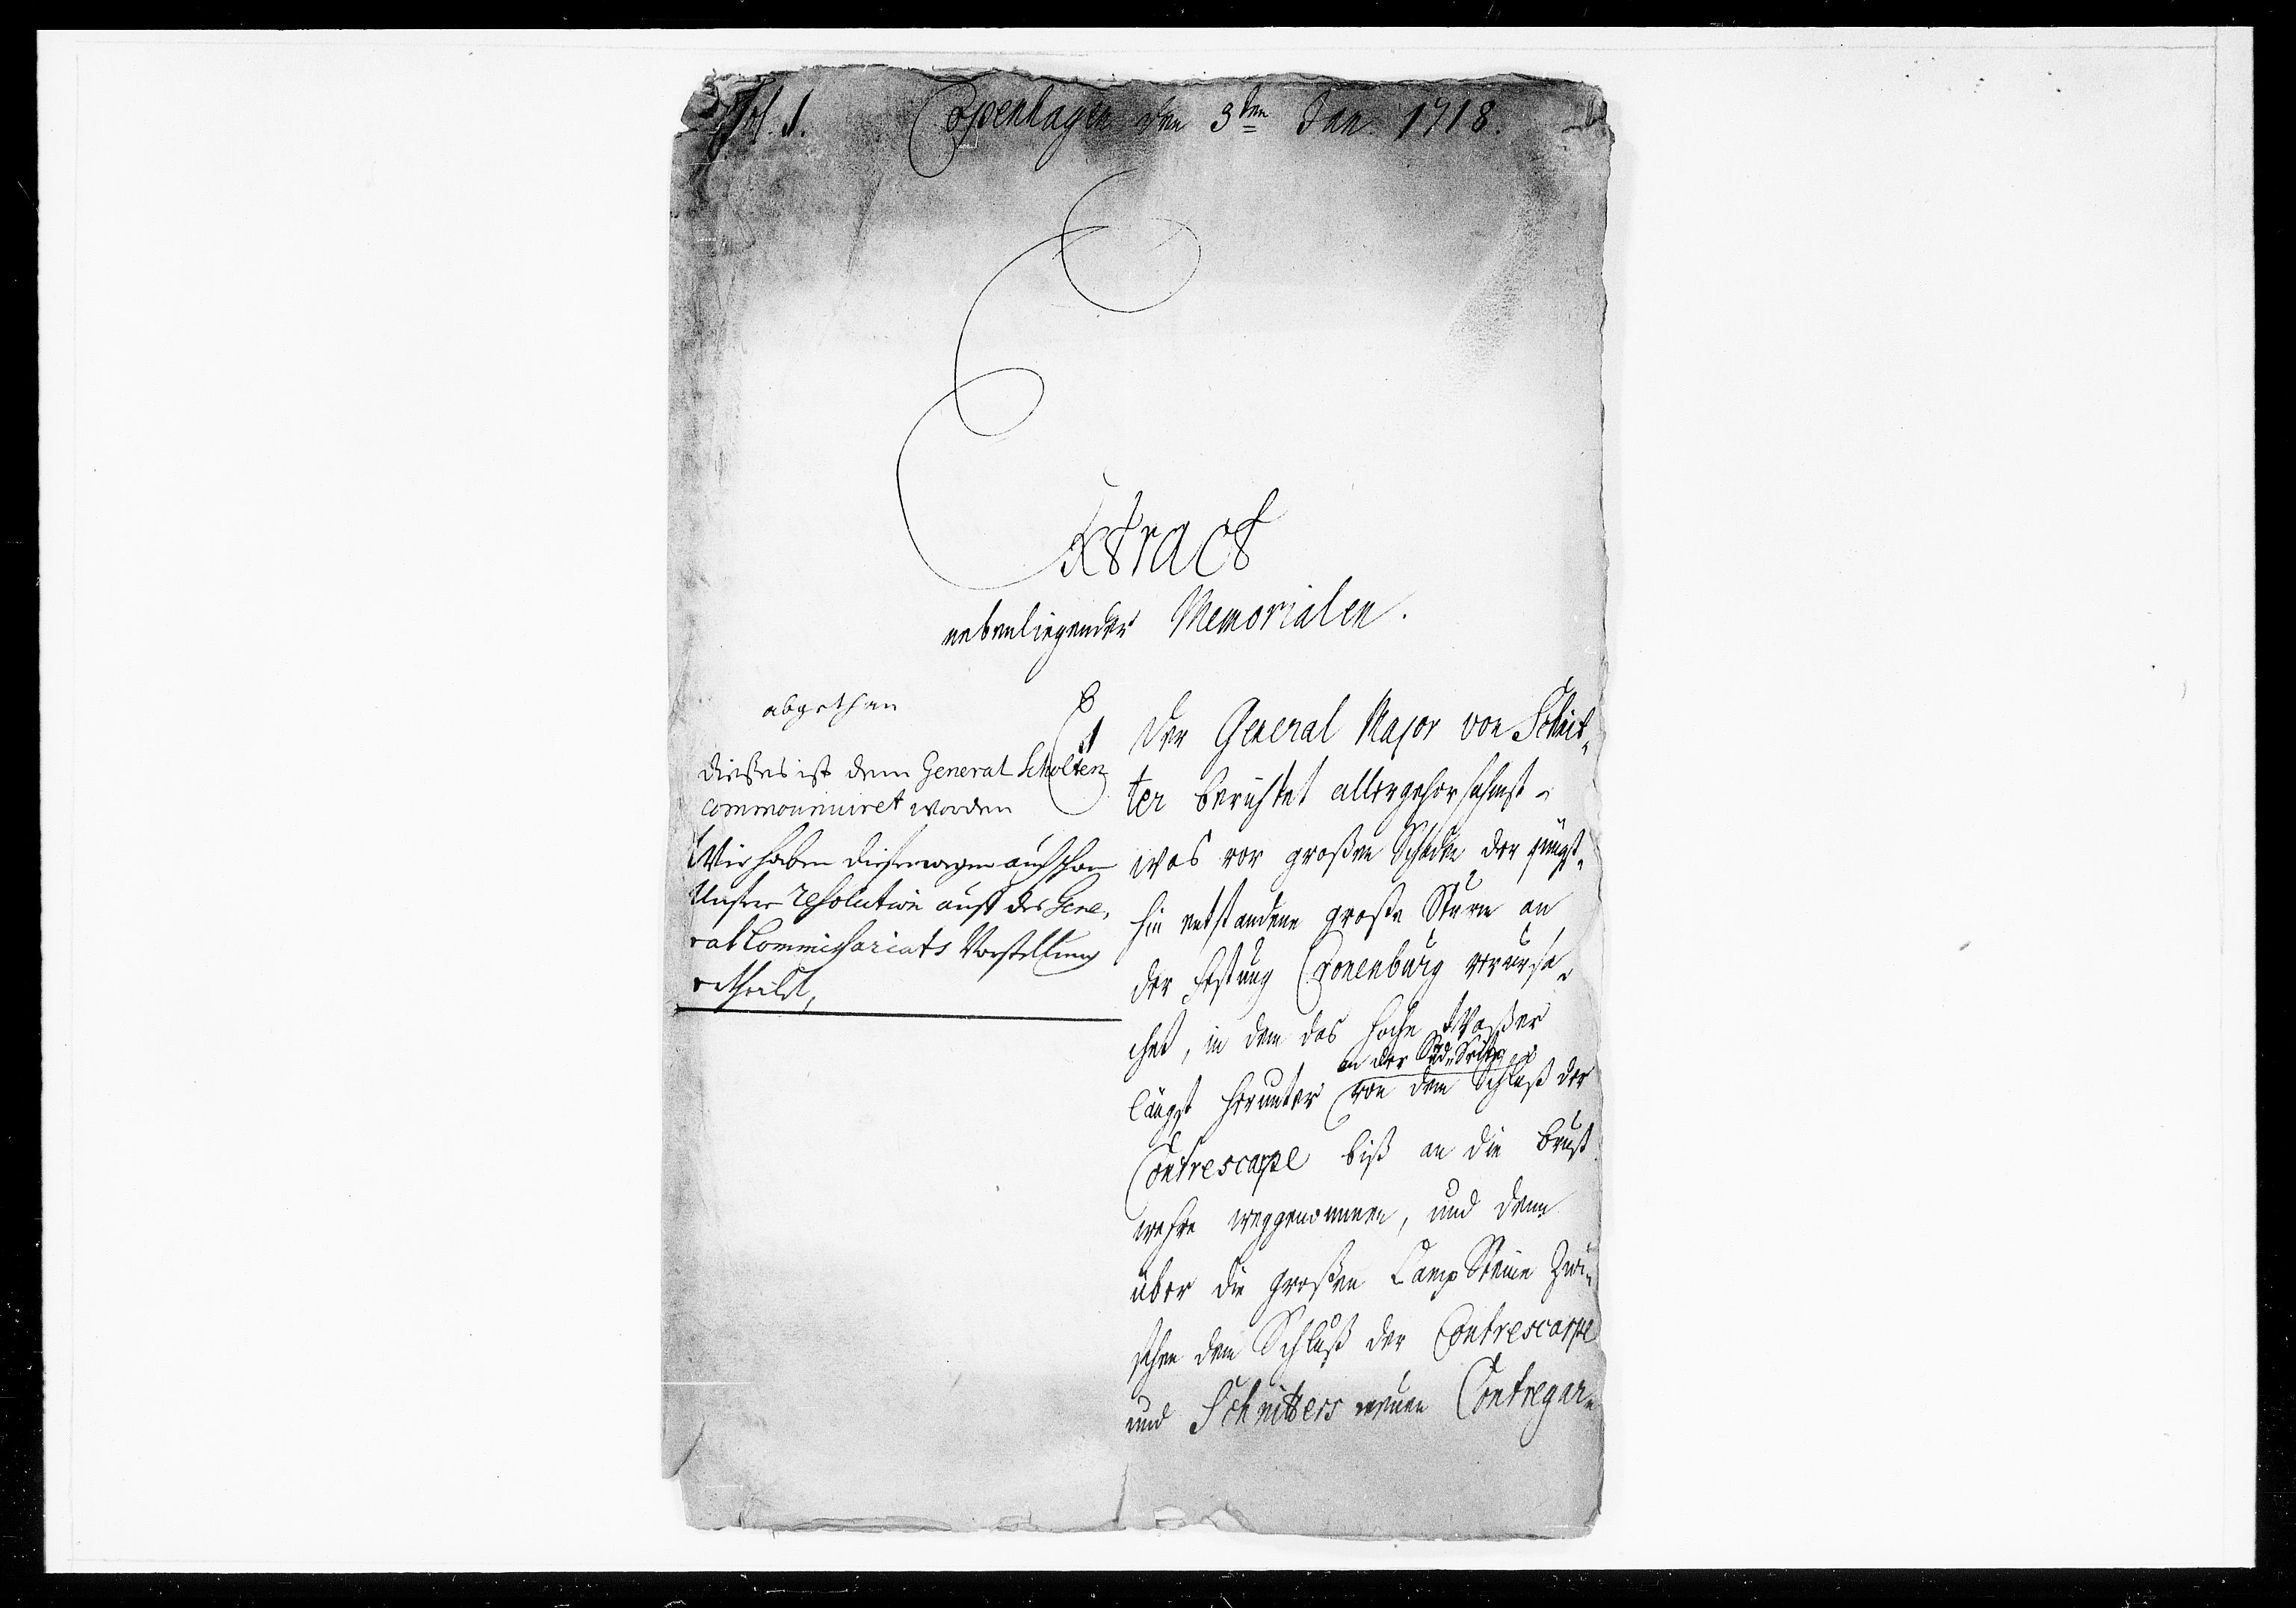 Fol. 1. Copenhagen den 3ten Jan. 1718.
Extract
nebenliegender Memorialen.
abgethan
dießes ist dem General Scholten
communiciret worden
Wir haben dieserwegen auch schon
Unsere resolution auff des Gene,
ral Commissariats Vorstellung
ertheilet,
1
Der General Major von Schnit,
ter berichtet allergehorsahmst
was vor großen Schaden der jüngst,
hin entstandene große Sturm an
der Festung Cronenburg verursa,
chet, in dem das hohe Waßer
an der Süd Seite
längst herunter von dem Schluß der
Contrescarpe biß an die Brust
wehre weggenommen, und denn
über die großen Camp Steine Zwi,
schen dem Schluß der Contrescarpe
und Schnitters neuen Contregar,